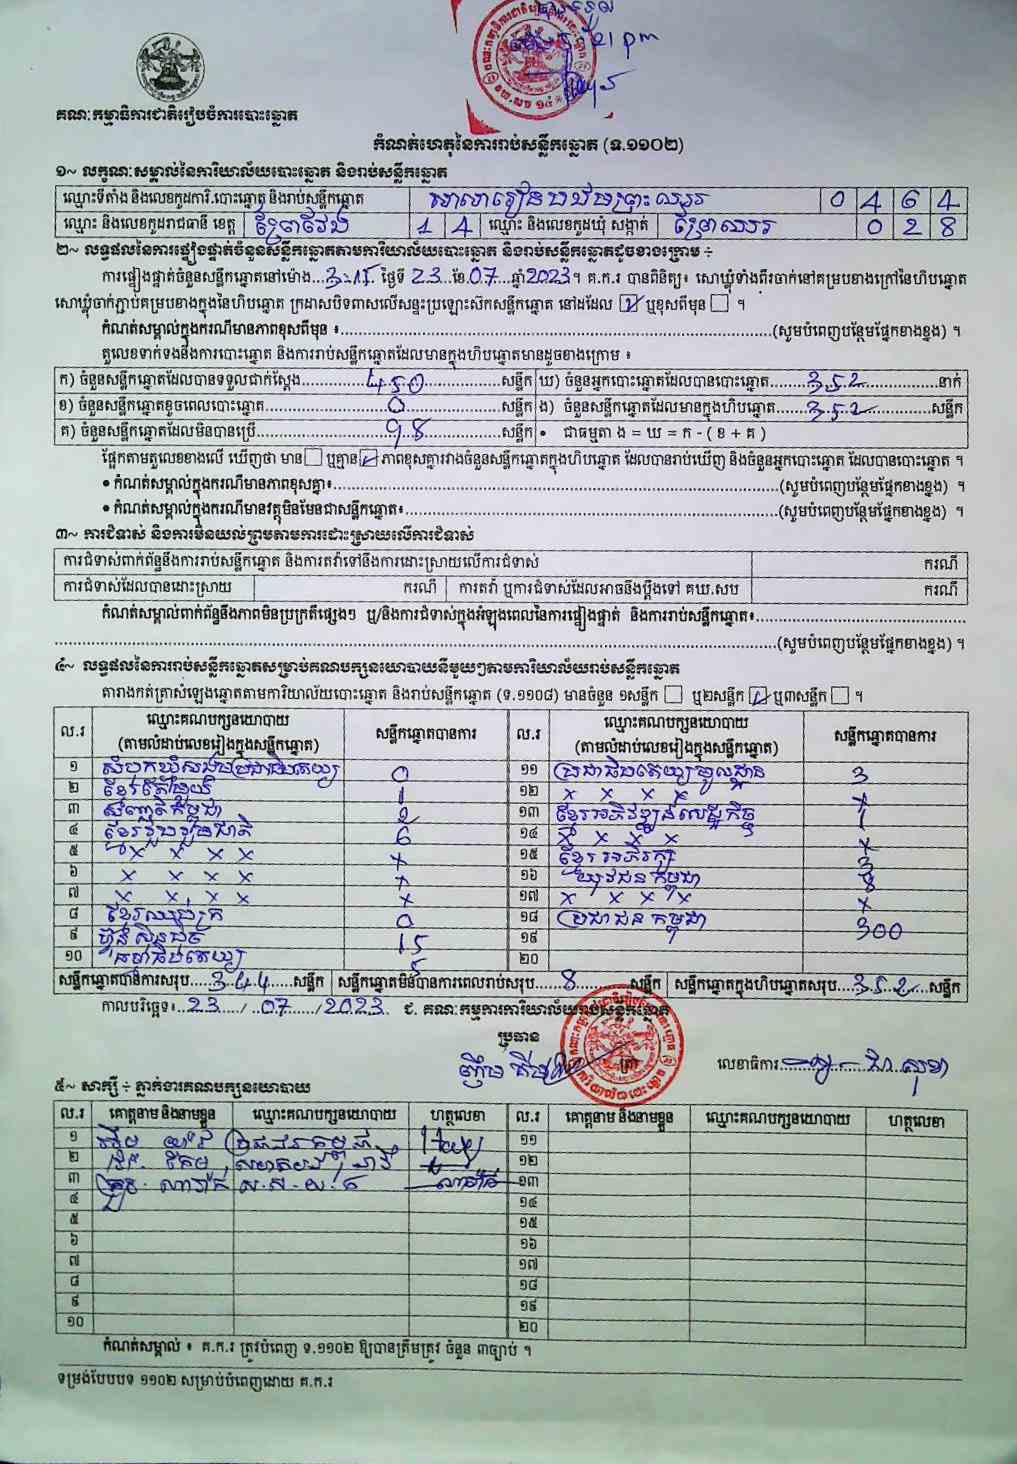 21 pm
គណៈកម្មាធិការជាតិរៀបចំការបោះឆ្នោត
កំណត់ហេតុនៃការរាប់សន្លឹកឆ្នោត (ទ.១១០២)
១~ លក្ខណៈសម្គាល់នៃការិយាល័យបោះឆ្នោត និងរាប់សន្លឹកឆ្នោត
ឈ្មោះទីតាំង និងលេខកូដការិ.បោះឆ្នោត និងរាប់សន្លឹកឆ្នោត 0 4 6 4
ឈ្មោះ និងលេខកូដរាជធានី ខេត្ត ព្រៃវែង 1 4 ឈ្មោះ និងលេខកូដឃុំ សង្កាត់ 0 2 8
២~ លទ្ធផលនៃការផ្ទៀងផ្ទាត់ចំនួនសន្លឹកឆ្នោតតាមការិយាល័យបោះឆ្នោត និងរាប់សន្លឹកឆ្នោតដូចខាងក្រោម ÷
ការផ្ទៀងផ្ទាត់ចំនួនសន្លឹកឆ្នោតនៅម៉ោង 3:15 ថ្ងៃទី 23 ខែ 07 ឆ្នាំ 2023។ គ.ក.រ បានពិនិត្យ៖ សោឃ្លុំទាំងពីរចាក់នៅគម្របខាងក្រៅនៃហិបឆ្នោត
សោឃ្លុំចាក់ភ្ជាប់គម្របខាងក្នុងនៃហិបឆ្នោត ក្រដាសបិទពាសលើសន្ទះប្រឡោះស៊កសន្លឹកឆ្នោត នៅដដែល ☑ ឬខុសពីមុន ☐ ។
កំណត់សម្គាល់ក្នុងករណីមានភាពខុសពីមុន ៖ (សូមបំពេញបន្ថែមផ្នែកខាងខ្នង) ។
តួលេខទាក់ទងនឹងការបោះឆ្នោត និងការរាប់សន្លឹកឆ្នោតដែលមានក្នុងហិបឆ្នោតមានដូចខាងក្រោម ៖
ក) ចំនួនសន្លឹកឆ្នោតដែលបានទទួលជាក់ស្តែង 450 សន្លឹក ឃ) ចំនួនអ្នកបោះឆ្នោតដែលបានបោះឆ្នោត 352 នាក់
ខ) ចំនួនសន្លឹកឆ្នោតខូចពេលបោះឆ្នោត 0 សន្លឹក ង) ចំនួនសន្លឹកឆ្នោតដែលមានក្នុងហិបឆ្នោត 352 សន្លឹក
គ) ចំនួនសន្លឹកឆ្នោតដែលមិនបានប្រើ 98 សន្លឹក • ជាធម្មតា ង = ឃ = ក - ( ខ + គ )
ផ្អែកតាមតួលេខខាងលើ ឃើញថា មាន ☐ ឬគ្មាន ☑ ភាពខុសគ្នារវាងចំនួនសន្លឹកឆ្នោតក្នុងហិបឆ្នោត ដែលបានរាប់ឃើញ និងចំនួនអ្នកបោះឆ្នោត ដែលបានបោះឆ្នោត ។
• កំណត់សម្គាល់ក្នុងករណីមានភាពខុសគ្នា៖ (សូមបំពេញបន្ថែមផ្នែកខាងខ្នង) ។
• កំណត់សម្គាល់ក្នុងករណីមានវត្ថុមិនមែនជាសន្លឹកឆ្នោត៖ (សូមបំពេញបន្ថែមផ្នែកខាងខ្នង) ។
៣~ ការជំទាស់ និងការមិនយល់ព្រមតាមការដោះស្រាយលើការជំទាស់
ការជំទាស់ពាក់ព័ន្ធនឹងការរាប់សន្លឹកឆ្នោត និងការតវ៉ាទៅនឹងការដោះស្រាយលើការជំទាស់ ករណី
ការជំទាស់ដែលបានដោះស្រាយ ករណី ការតវ៉ា ឬការជំទាស់ដែលអាចនឹងប្តឹងទៅ គឃ.សប ករណី
កំណត់សម្គាល់ពាក់ព័ន្ធនឹងភាពមិនប្រក្រតីផ្សេងៗ ឬ/និងការជំទាស់ក្នុងអំឡុងពេលនៃការផ្ទៀងផ្ទាត់ និងការរាប់សន្លឹកឆ្នោត៖
(សូមបំពេញបន្ថែមផ្នែកខាងខ្នង) ។
៤~ លទ្ធផលនៃការរាប់សន្លឹកឆ្នោតសម្រាប់គណបក្សនយោបាយនីមួយៗតាមការិយាល័យរាប់សន្លឹកឆ្នោត
តារាងកត់ត្រាសំឡេងឆ្នោតតាមការិយាល័យបោះឆ្នោត និងរាប់សន្លឹកឆ្នោត (ទ.១១០៨) មានចំនួន ១សន្លឹក ☐ ឬ២សន្លឹក ☑ ឬ៣សន្លឹក ☐ ។
ល.រ ឈ្មោះគណបក្សនយោបាយ (តាមលំដាប់លេខរៀងក្នុងសន្លឹកឆ្នោត) សន្លឹកឆ្នោតបានការ ល.រ ឈ្មោះគណបក្សនយោបាយ (តាមលំដាប់លេខរៀងក្នុងសន្លឹកឆ្នោត) សន្លឹកឆ្នោតបានការ
១ សំបុកឃ្មុំសង្គមប្រជាធិបតេយ្យ 0 ១១ ប្រជាធិបតេយ្យមូលដ្ឋាន 3
២ ខ្មែរតែមួយ 1 ១២ x x x x x
៣ សញ្ជាតិកម្ពុជា 2 ១៣ ខ្មែរអភិវឌ្ឍន៍សេដ្ឋកិច្ច 1
៤ ខ្មែររួបរួមជាតិ 6 ១៤ x x x x x
៥ x x x x x ១៥ ខ្មែរអភិរក្ស 3
៦ x x x x x ១៦ យុវជនកម្ពុជា 8
៧ x x x x x ១៧ x x x x x
៨ ខ្មែរឈប់ក្រ 0 ១៨ ប្រជាជនកម្ពុជា 300
៩ ហ៊្វុនស៊ិនប៉ិច 15 ១៩
១០ ធម្មាធិបតេយ្យ 5 ២០
សន្លឹកឆ្នោតបានការសរុប 344 សន្លឹក សន្លឹកឆ្នោតមិនបានការពេលរាប់សរុប 8 សន្លឹក សន្លឹកឆ្នោតក្នុងហិបឆ្នោតសរុប 352 សន្លឹក
កាលបរិច្ឆេទ៖ 23 / 07 / 2023 ជ. គណៈកម្មការការិយាល័យរាប់សន្លឹកឆ្នោត
ប្រធាន
លេខាធិការ
៥~ សាក្សី ÷ ភ្នាក់ងារគណបក្សនយោបាយ
ល.រ គោត្តនាម និងនាមខ្លួន ឈ្មោះគណបក្សនយោបាយ ហត្ថលេខា ល.រ គោត្តនាម និងនាមខ្លួន ឈ្មោះគណបក្សនយោបាយ ហត្ថលេខា
១ ប្រជាជនកម្ពុជា ១១
២ ១២
៣ ១៣
៤ ១៤
៥ ១៥
៦ ១៦
៧ ១៧
៨ ១៨
៩ ១៩
១០ ២០
កំណត់សម្គាល់ ៖ គ.ក.រ ត្រូវបំពេញ ទ.១១០២ ឱ្យបានត្រឹមត្រូវ ចំនួន ៣ច្បាប់ ។
ទម្រង់បែបបទ ១១០២ សម្រាប់បំពេញដោយ គ.ក.រ